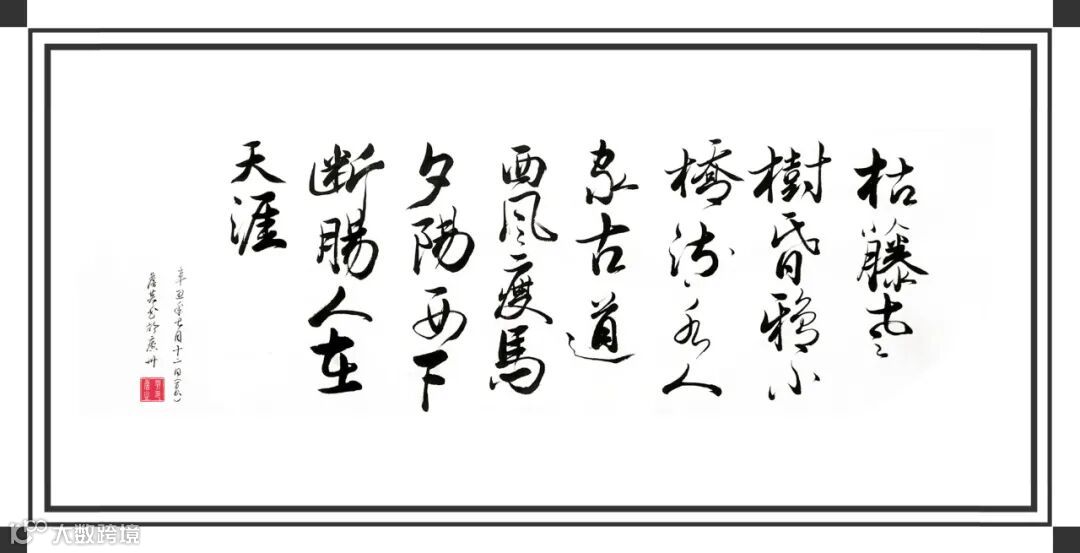 枯藤老
樹昏鴉小
橋流水人
家古道
西風瘦馬
夕陽西下
断腸人在
天涯
辛丑年七月十二日
於廣州
大数跨境